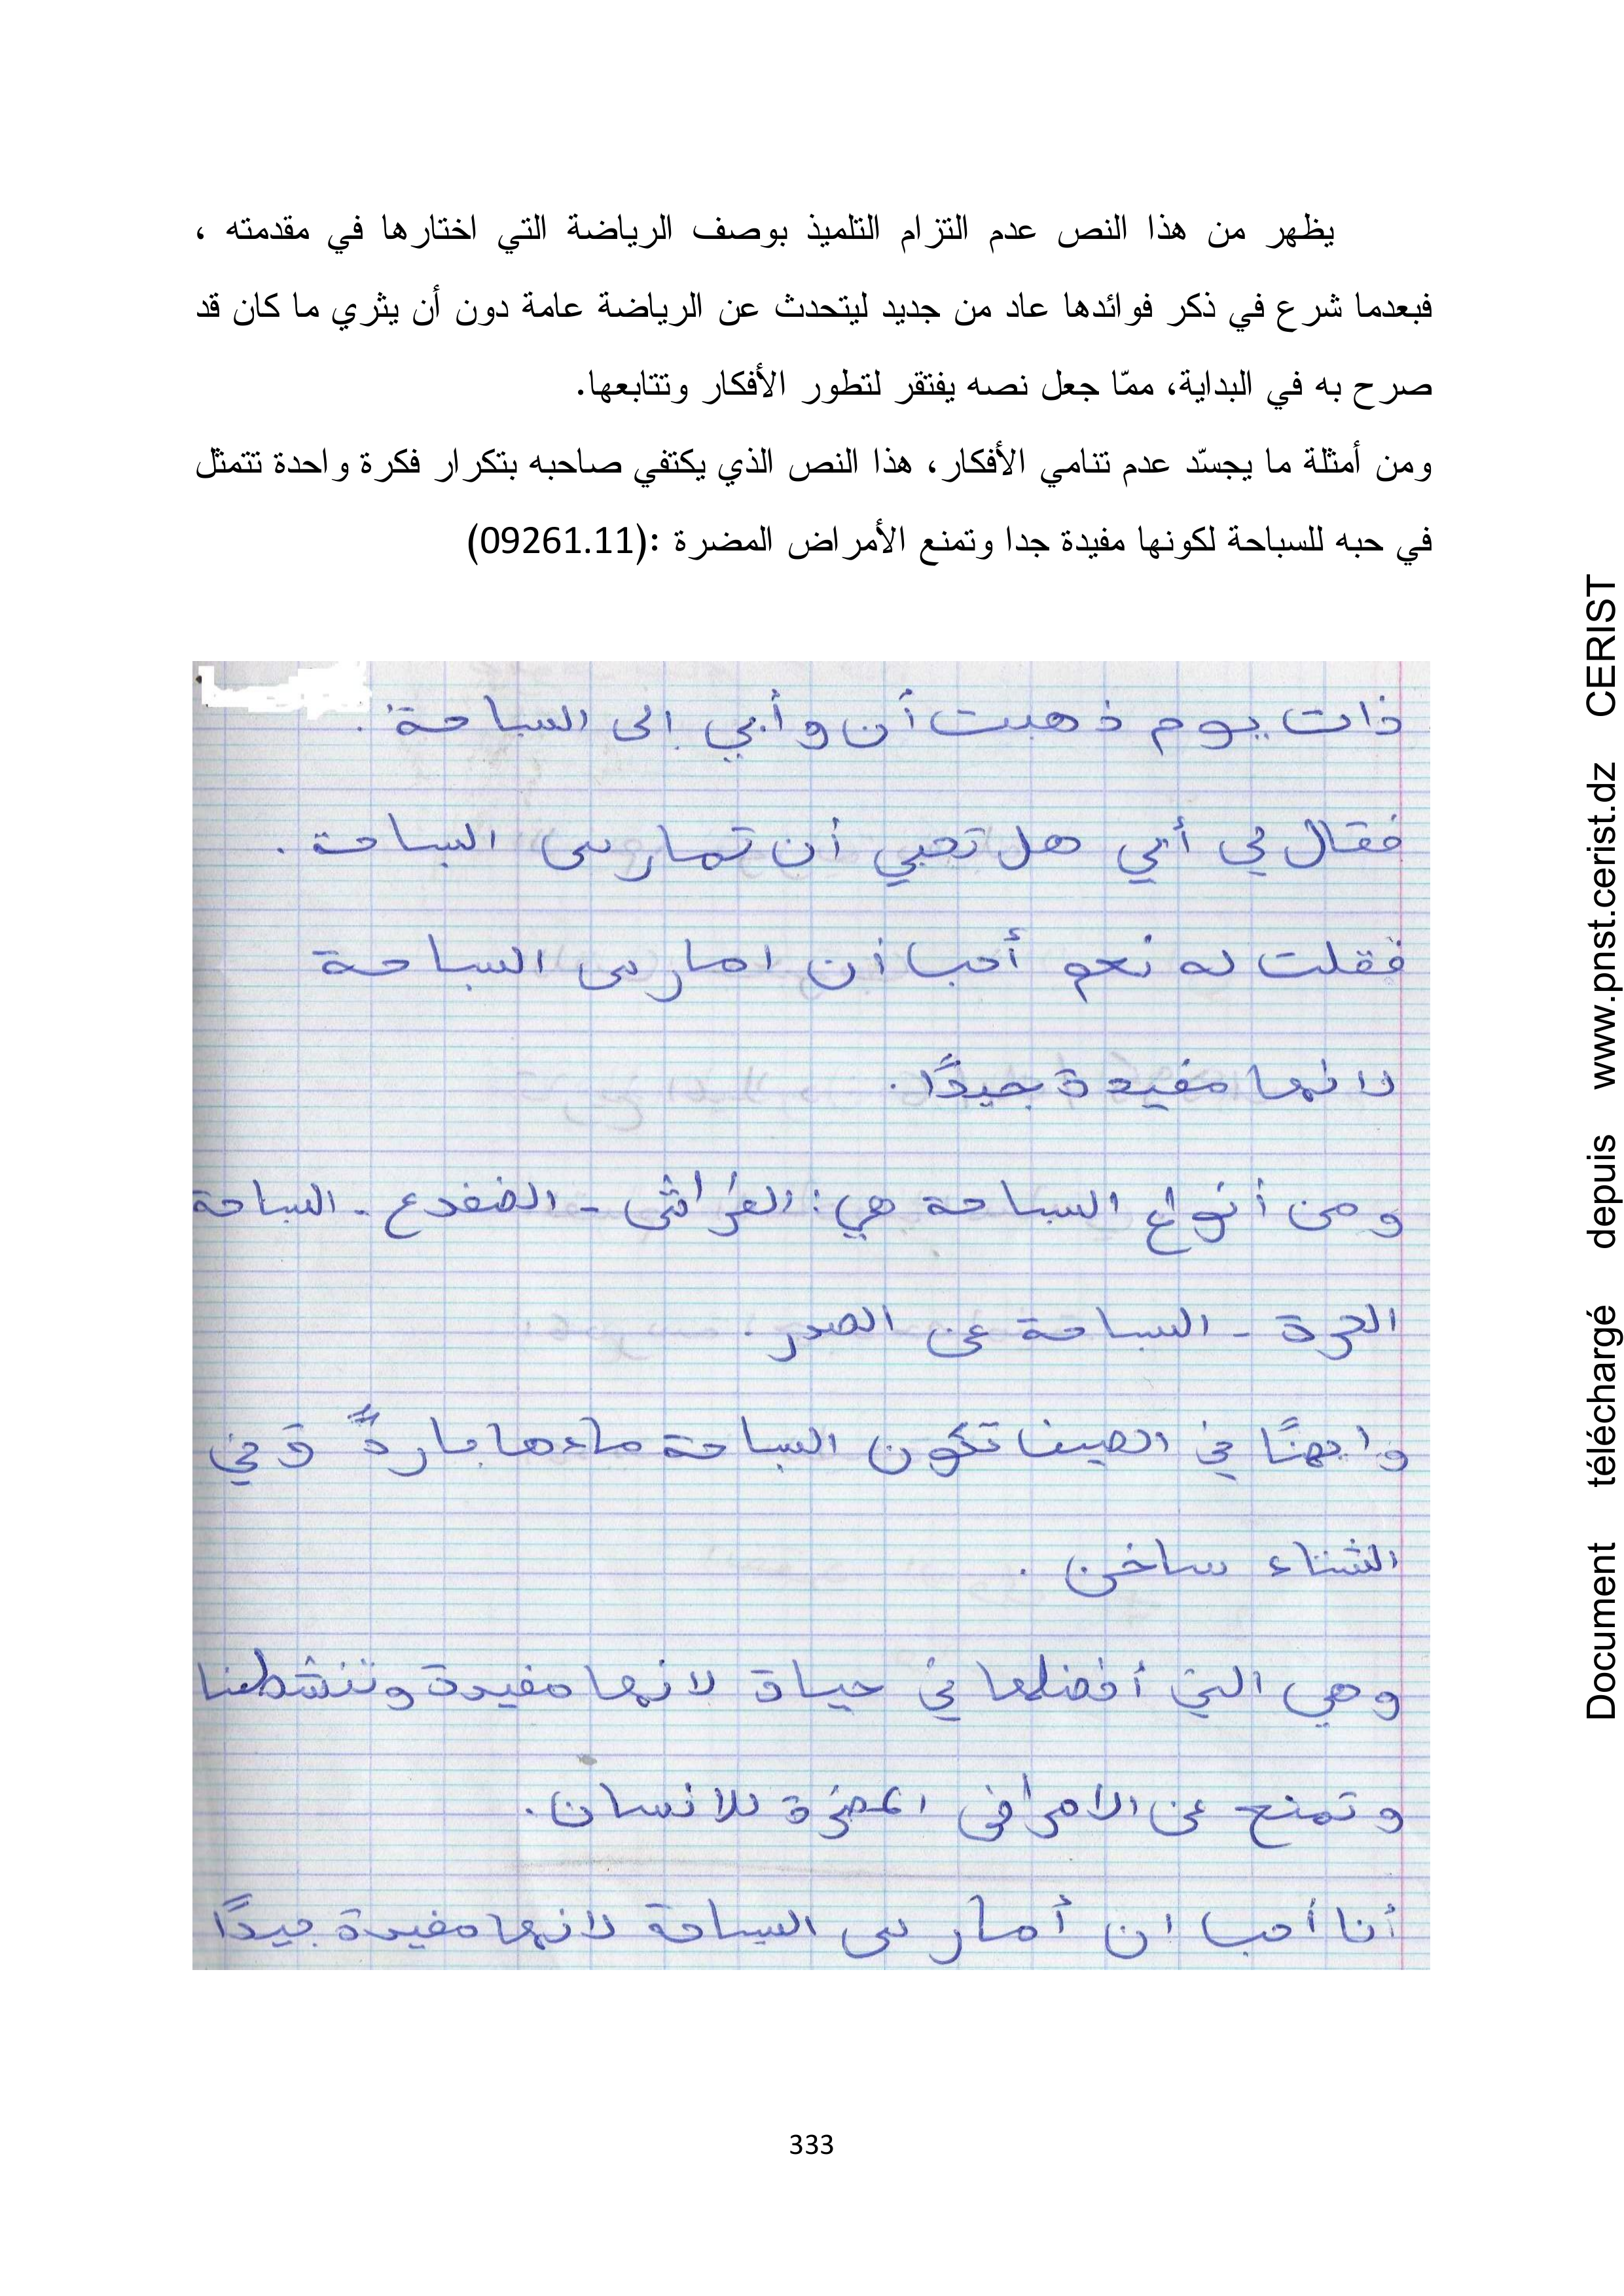 يظهر من هذا النص عدم التزام التلميذ بوصف الرياضة التي اختارها في مقدمته ،
فبعدما شرع في ذكر فوائدها عاد من جديد ليتحدث عن الرياضة عامة دون أن يثري ما كان قد
صرح به في البداية، ممّا جعل نصه يفتقر لتطور الأفكار وتتابعها.
ومن أمثلة ما يجسّد عدم تنامي الأفكار، هذا النص الذي يكتفي صاحبه بتكرار فكرة واحدة تتمثل
في حبه للسباحة لكونها مفيدة جدا وتمنع الأمراض المضرة :(09261.11)
ذات يوم ذهبت أن وأبي إلى السباحة.
فقال لي أبي هل تحبي أن تمارس السباحة.
فقلت له نعم أحب أن امارس السباحة
لانها مفيدة جيدًا.
ومن أنواع السباحة هي: الفراش - الضفدع - السباحة
الحرة - السباحة عن الصدر.
وايضًا في الصيف تكون السباحة ماءها باردًّ وفي
الشتاء ساخن .
وهي التي أفضلها في حياة لانها مفيدة وتنشطنا
و تمنع عن الامراض المضرة للانسان.
أنا أحب ان أمارس السباحة لانها مفيدة جيدًا
333
Document téléchargé depuis www.pnst.cerist.dz CERIST